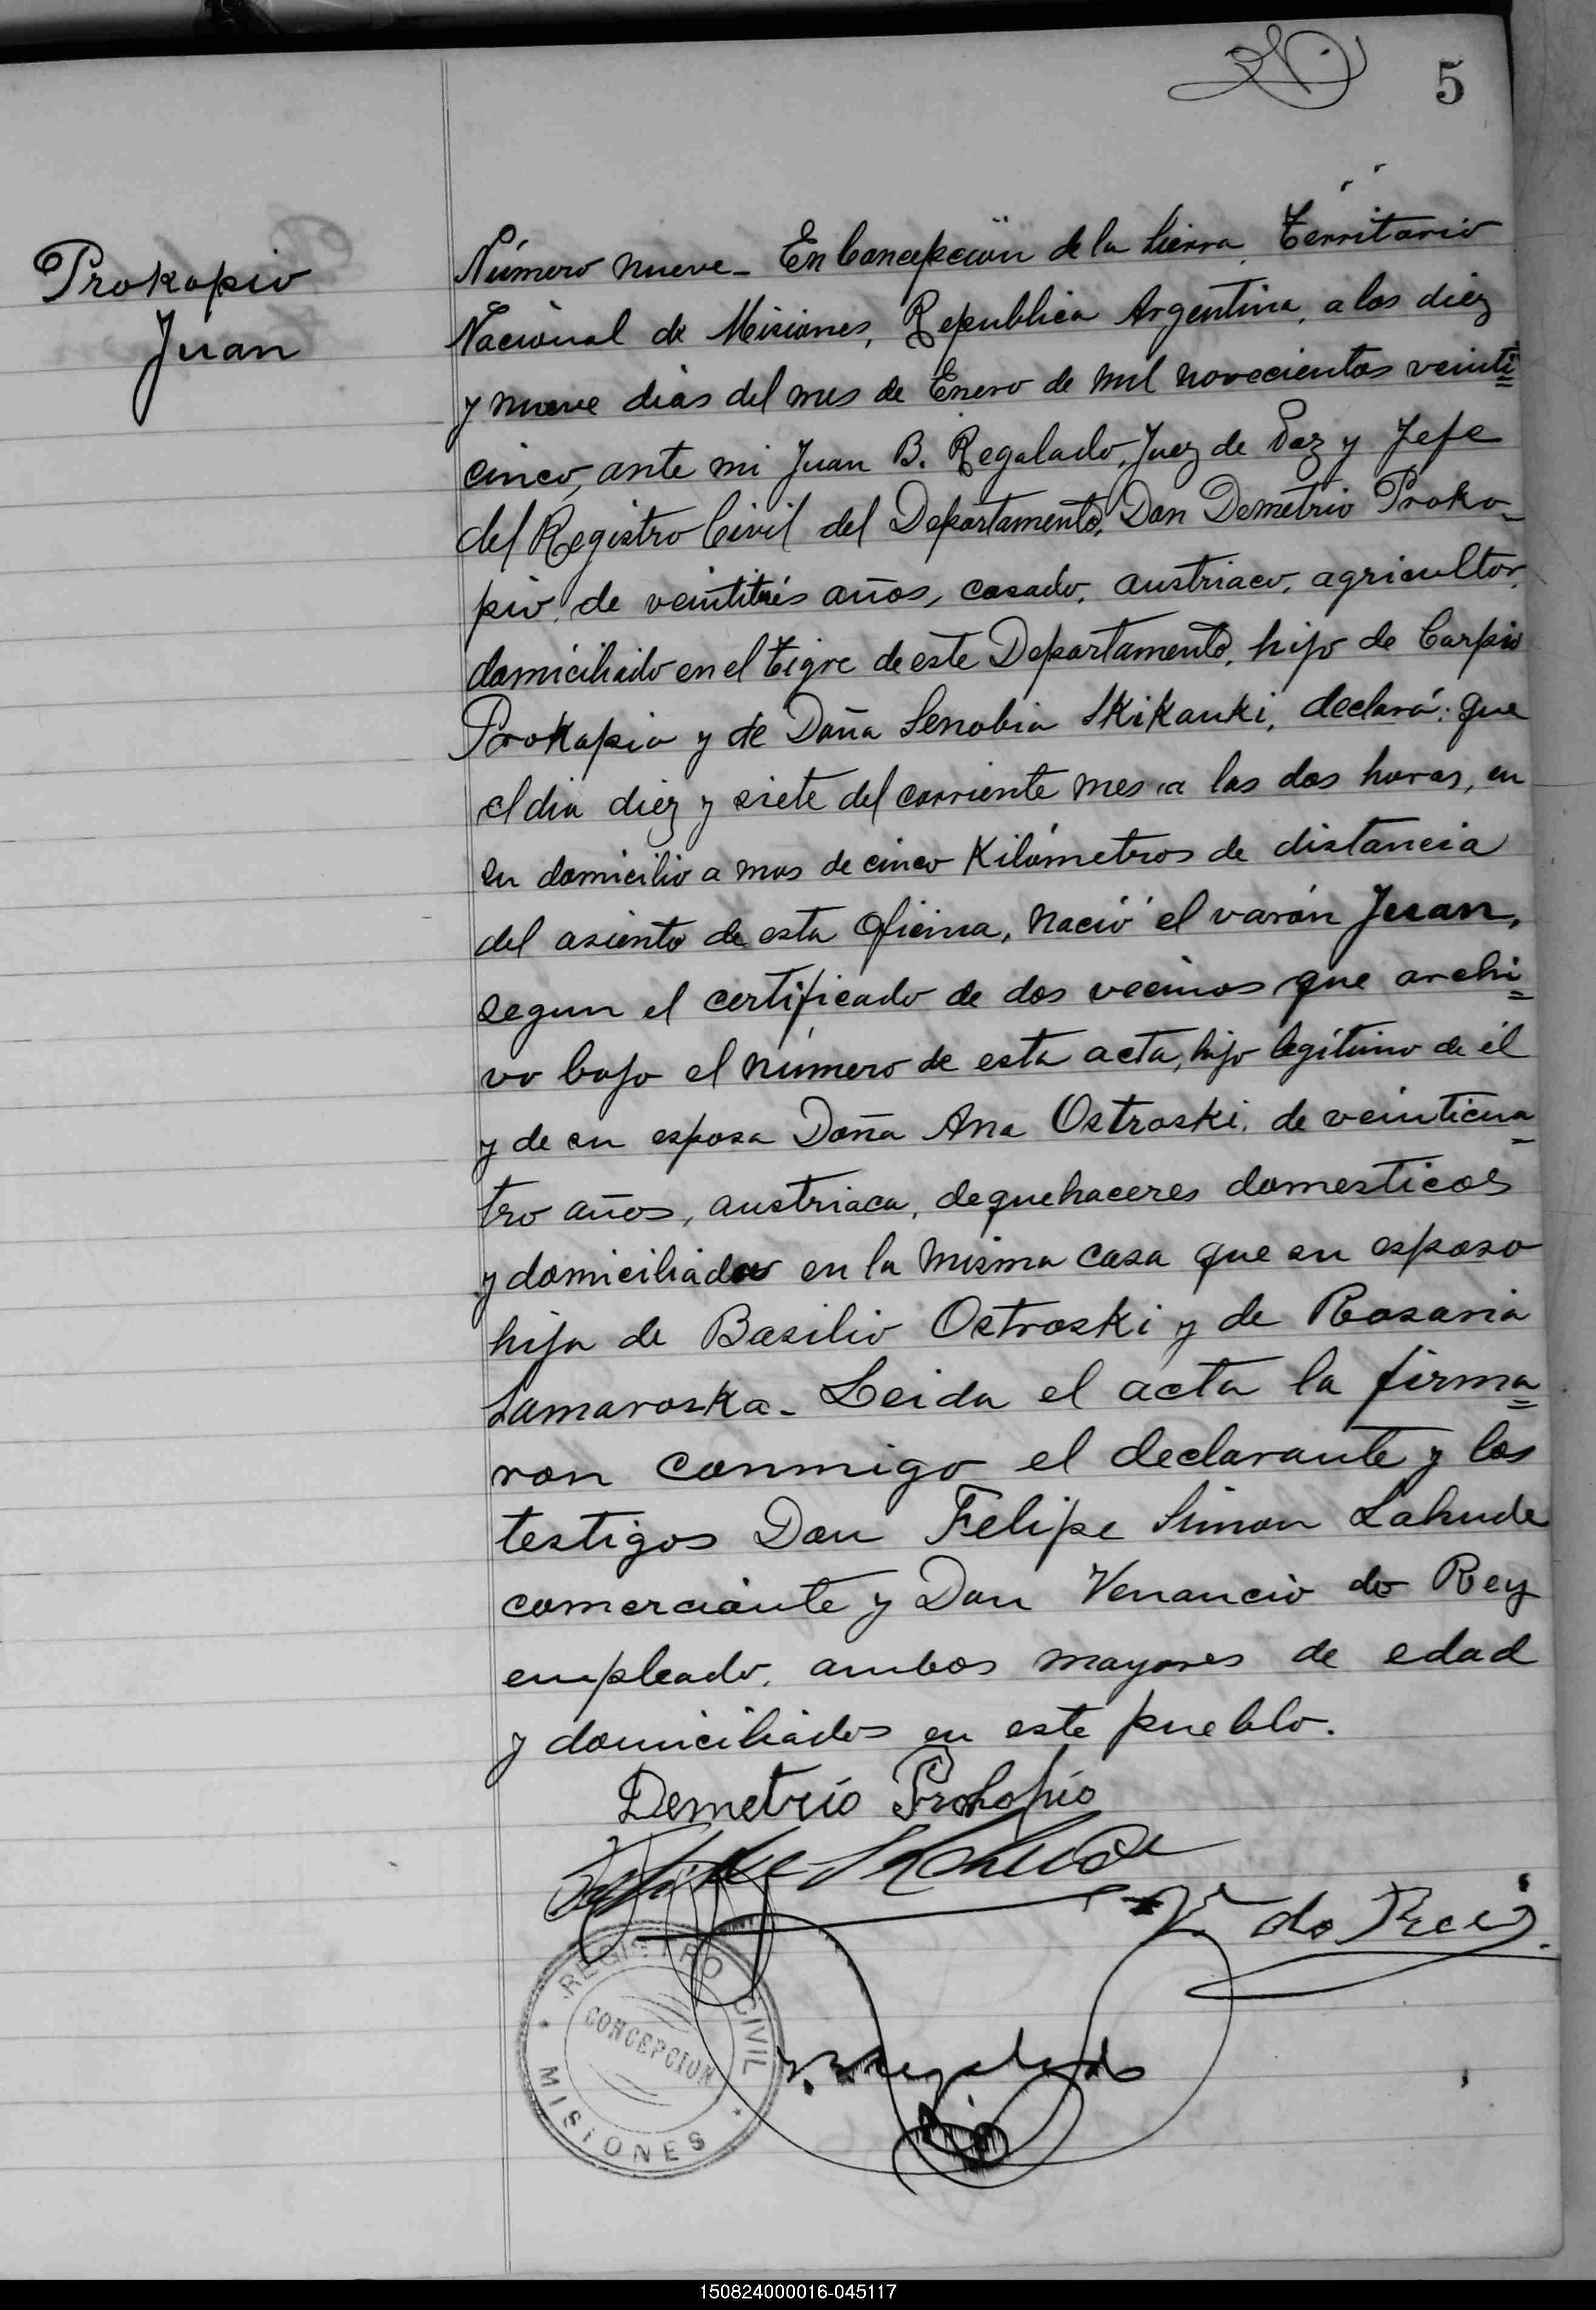 5
Prokopio
Juan
Número nueve - En Concepcion de la Sierra, Territorio
Nacional de Misiones, Republica Argentina, a los diez
y nueve dias del mes de Enero de mil novecientos veinti=
cinco, ante mi Juan B. Regalado, Juez de Paz y Jefe
del Registro Civil del Departamento, Don Demetrio Proko-
pio, de veintitrés años, casado, austriaco, agricultor,
domiciliado en el Tigre de este Departamento, hijo de Carpio
Prokopio y de Doña Senobia Skikauki, declaró: que
el dia diez y siete del corriente mes a las dos horas, en
su domicilio a mas de cinco Kilómetros de distancia
del asiento de esta Oficina, nació el varón Juan,
segun el certificado de dos vecinos que archi=
vo bajo el número de esta acta, hijo legítimo de él
y de su esposa Doña Ana Ostroski, de veinticua=
tro años, austriaca, de quehaceres domesticos
y domiciliada en la misma casa que su esposo
hija de Basilio Ostroski y de Rosaria
Samaroska - Leida el acta la firma=
ron conmigo el declarante y los
testigos Don Felipe Simon Lahude
comerciante y Don Venancio do Rey
empleado, ambos mayores de edad
y domiciliados en este pueblo.
Demetrio Prokopio
Felipe S Lahude
V. do Rey
J. B. Regalado
REGISTRO CIVIL
CONCEPCION
MISIONES
150824000016-045117